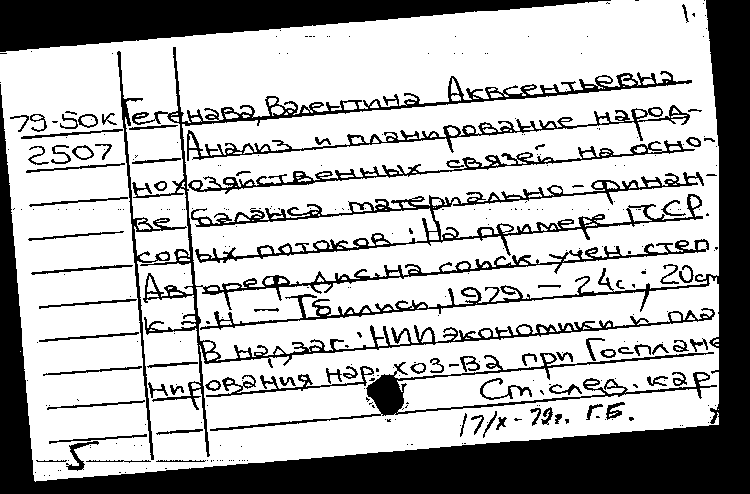 1.
79-50к Гегенава, Валентина Аквсентьевна
2507 Анализ и планирование народ-
нохозяйственных связей на осно-
ве баланса материально-финан-
совых потоков: На примере ГССР.
Автореф. дис. на соиск. учен. степ.
к.э.н. — Тбилиси, 1979. — 24с.; 20см
В надзаг.: НИИ экономики и пла-
нирования нар. хоз-ва при Госплане
См. след. кар-
17/X-79г. Г.Б.
5